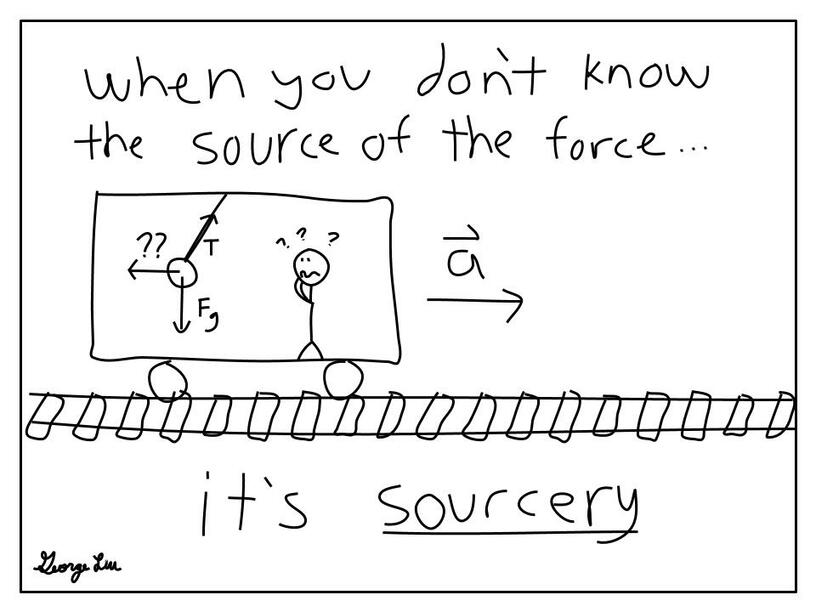 when you don't know
the source of the force...
? ? ?
??
T
a
Fg
it's sourcery
George Liu